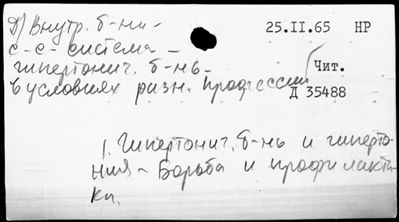 Д) Внутр. б-ни -
с-с- система -
гипертонич. б-нь -
в условиях разн. профессий
25.II.65 НР
Чит.
Д 35488
1. Гипертонич. б-нь и гиперто-
ния - Борьба и профилакти-
ка.